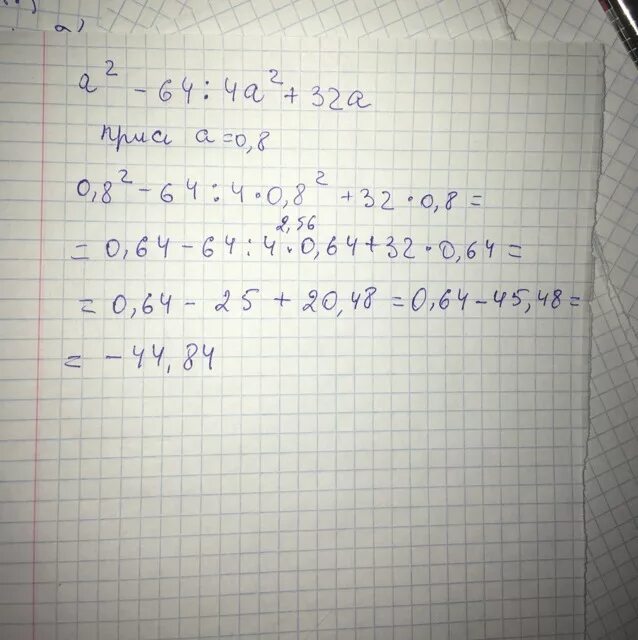 а)
a² - 64 : 4a² + 32a
при a = 0,8
0,8² - 64 : 4 · 0,8² + 32 · 0,8 =
2,56
= 0,64 - 64 : 4 · 0,64 + 32 · 0,64 =
= 0,64 - 25 + 20,48 = 0,64 - 45,48 =
= - 44,84